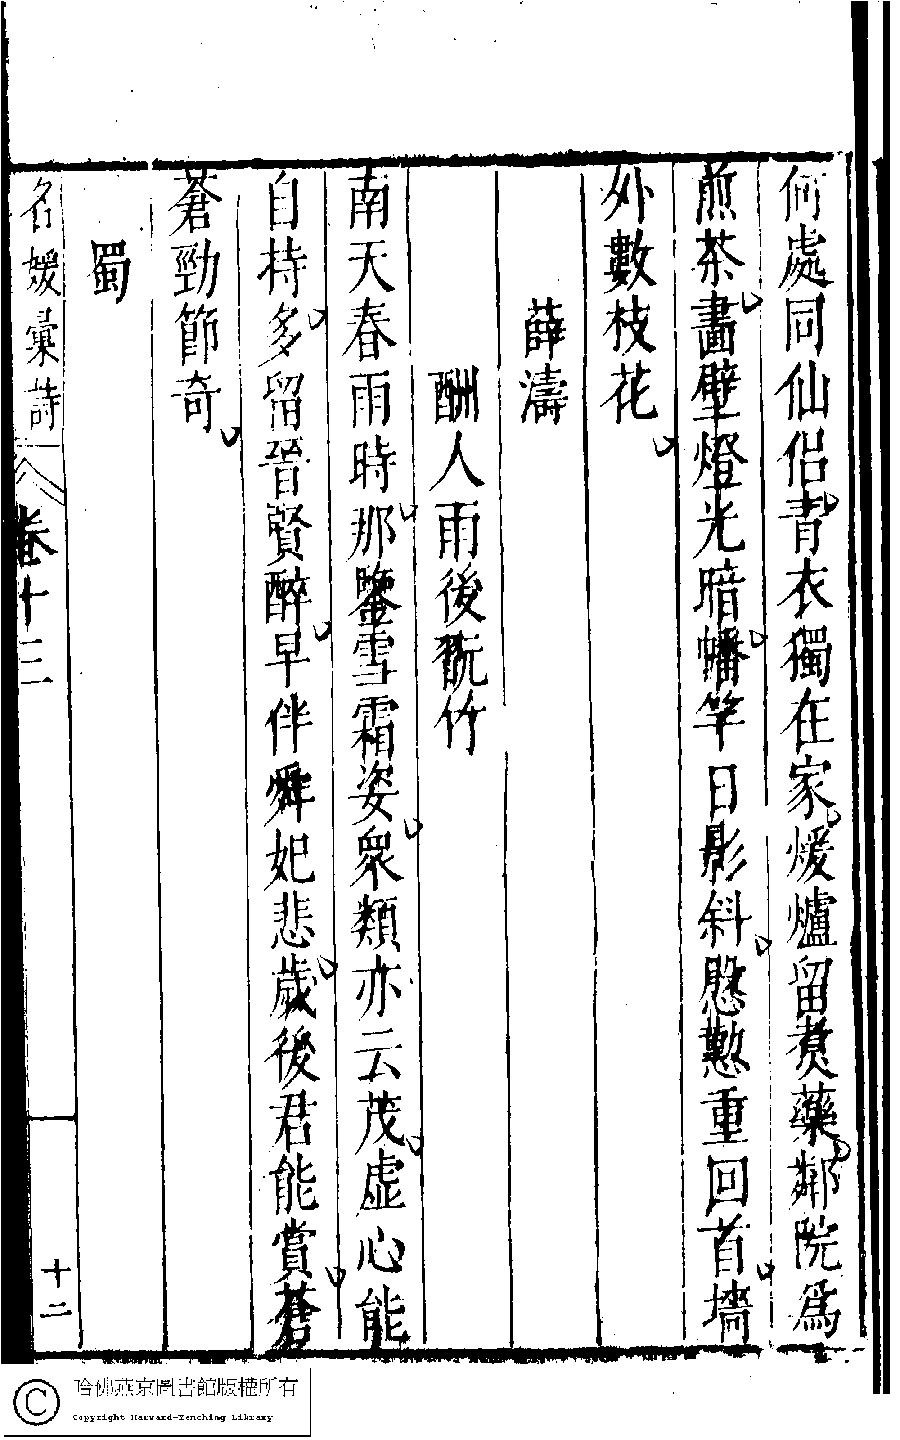 何處同仙侶青衣獨在家煖爐留煑藥鄰院爲
煎茶畵壁燈光暗幡竿日影斜慇懃重回首墻
外數枝花
薛濤
酬人雨後翫竹
南天春雨時那鑒雪霜姿衆類亦云茂虛心能
自持多留晉賢醉早伴舜妃悲歲後君能賞蒼
蒼勁節奇
蜀
名媛彙詩
卷十三
十二
哈佛燕京圖書館版權所有
Copyright Harvard-Yenching Library